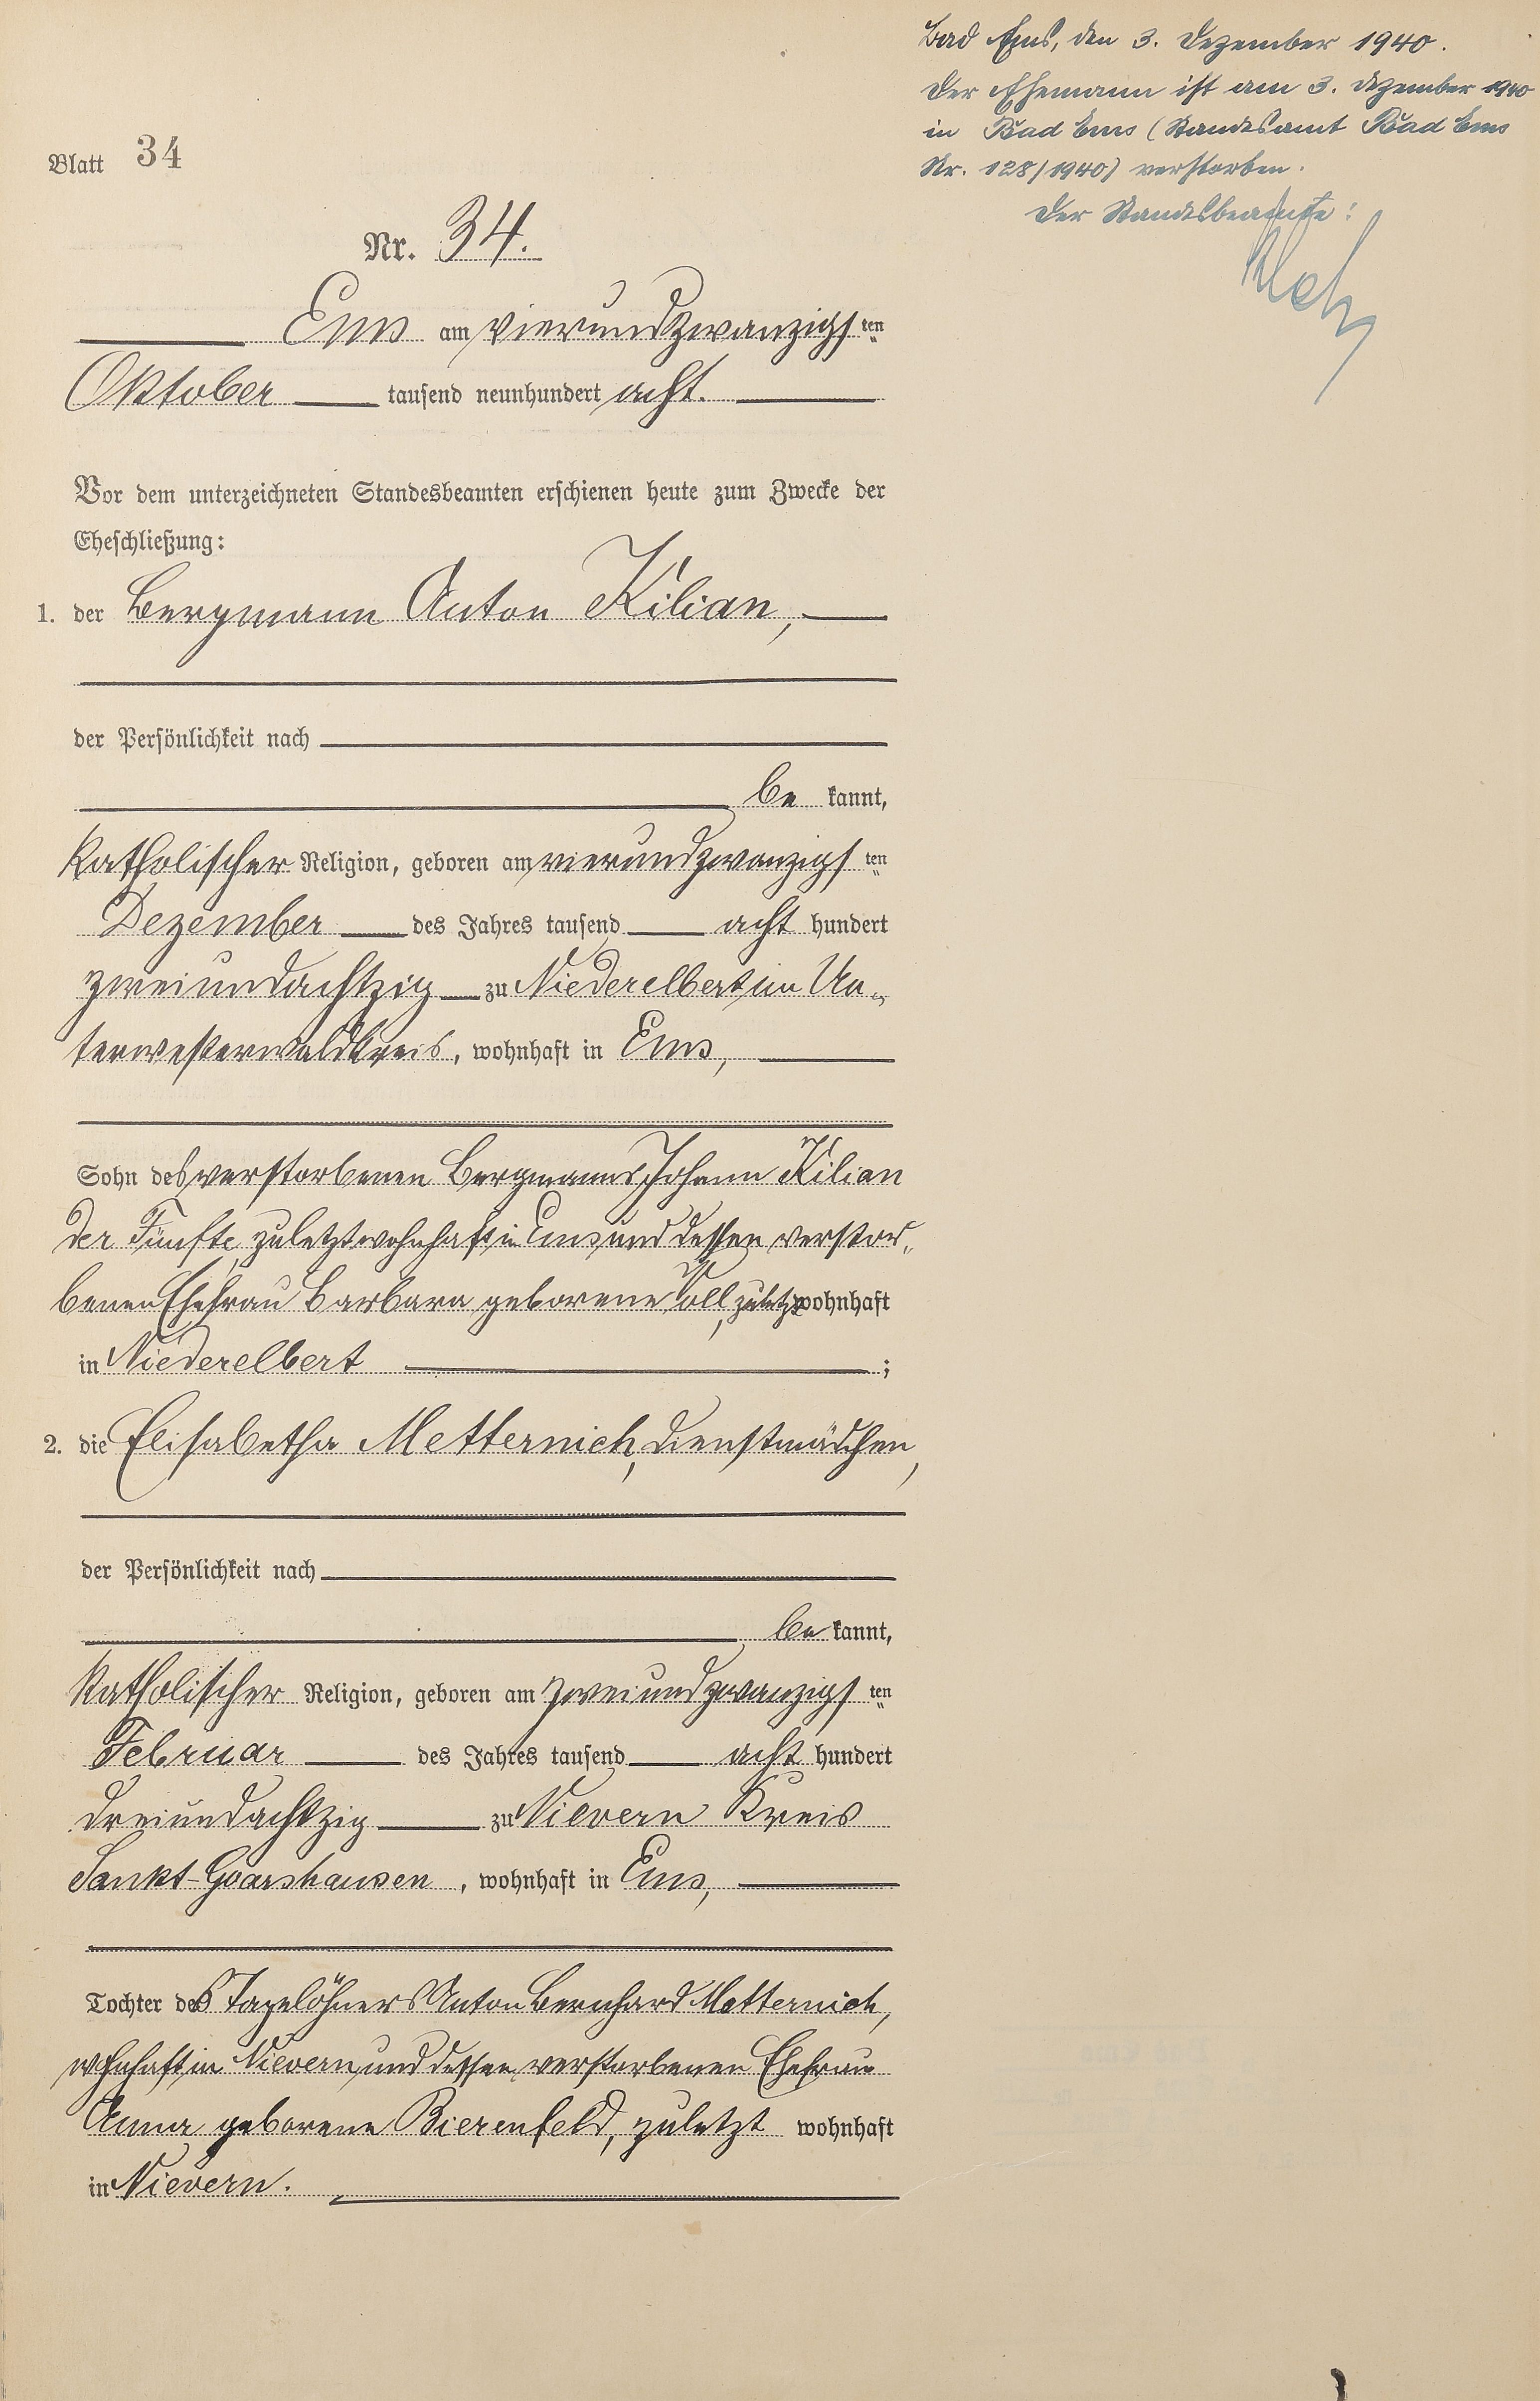 Bad Ems, den 3. Dezember 1940.
Der Ehemann ist am 3. Dezember 1940
in Bad Ems (Standesamt Bad Ems
Nr. 128/1940) verstorben.
Der Standesbeamte:
Blatt 34
Nr. 34.
Ems am vierundzwanzigsten
Oktober tausend neunhundert acht.
Vor dem unterzeichneten Standesbeamten erschienen heute zum Zwecke der
Eheschließung:
1. der Bergmann Anton Kilian,
der Persönlichkeit nach
be kannt,
katholischer Religion, geboren am vierundzwanzigsten
Dezember des Jahres tausend acht hundert
zweiundachtzig zu Niederelbert im Un-
terwesterwaldkreis, wohnhaft in Ems,
Sohn des verstorbenen Bergmanns Johann Kilian
der Fünfte, zuletzt wohnhaft in Ems und dessen verstor-
benen Ehefrau Barbara geborene, zuletzt wohnhaft
in Niederelbert ;
2. die Elisabetha Metternich, Dienstmädchen,
der Persönlichkeit nach
be kannt,
katholischer Religion, geboren am zweiundzwanzigsten
Februar des Jahres tausend acht hundert
dreiundachtzig zu Nievern Kreis
Sankt-Goarshausen, wohnhaft in Ems,
Tochter des Tagelöhners Anton Bernhard Metternich,
wohnhaft in Nievern und dessen verstorbenen Ehefrau
Anna geborene Bierenfeld, zuletzt wohnhaft
in Nievern.